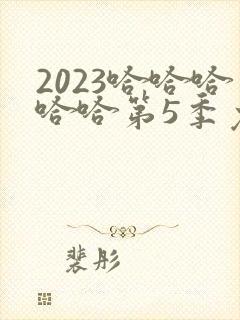 2023哈哈哈
哈哈第5季
裴彤